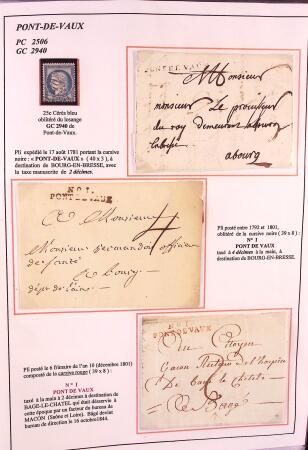 PONT-DE-VAUX
PC 2506
GC 2940
25c Cérès bleu
oblitéré du losange
GC 2940 de
Pont-de-Vaux.
Pli expédié le 17 août 1781 portant la cursive
noire : « PONT-DE-VAUX » ( 40 x 3 ), à
destination de BOURG-EN-BRESSE, avec
la taxe manuscrite de 2 décimes.
PONT DE VAUX
Monsieur
monsieur le procureur
du roy demeurant
abourg
N° 1.
PONT DE VAUX
4
A Monsieur
Monsieur officier
de santé
A Bourg
dépt. de l'ain
Pli posté entre 1792 et 1801,
oblitéré de la cursive noire ( 39 x 8 ) :
N° 1
PONT DE VAUX
taxé à 4 décimes à la main, à
destination de BOURG-EN-BRESSE.
Pli posté le 6 frimaire de l'an 10 (décembre 1801)
composté de la cursive rouge ( 39 x 8 ) :
N° 1
PONT DE VAUX
taxé à la main à 2 décimes à destination de
BAGE-LE-CHATEL qui était desservie à
cette époque par un facteur du bureau de
MACON (Saône et Loire). Bâgé devient
bureau de direction le 16 octobre 1844.
N° 1
PONT DE VAUX
Au Citoyen
de l'hospice
A Bagé